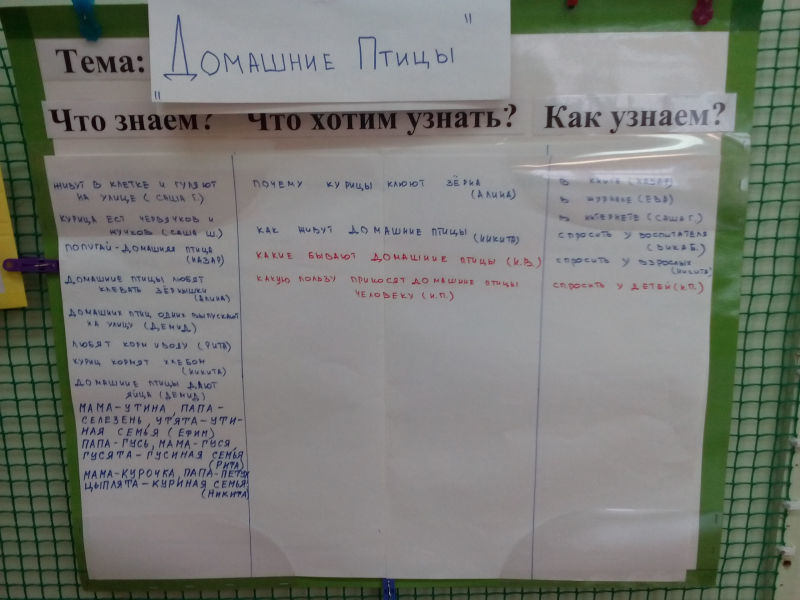 Тема:
"Домашние Птицы"
Что знаем?
Что хотим узнать?
Как узнаем?
живут в клетке и гуляют
на улице (Саша Г.)
курица ест червячков и
жучков (Саша Ш.)
попугай-домашняя птица
(Назар)
домашние птицы любят
клевать зёрнышки
(Алина)
домашних птиц одних выпускают
на улицу (Демид)
любят корм и воду (Рита)
куриц кормят хлебом
(Никита)
домашние птицы дают
яйца (Демид)
мама-утина, папа-
селезень, утята-ути-
ная семья (Ефим)
папа-гусь, мама-гуся,
гусята-гусиная семья
(Рита)
мама-курочка, папа-петух
цыплята-куриная семья
(Никита)
почему курицы клюют зёрна
(Алина)
как живут домашние птицы (Никита)
какие бывают домашние птицы (И.В.)
какую пользу приносят домашние птицы
человеку (И.П.)
в книге (Назар)
в журнале (Ева)
в интернете (Саша Г.)
спросить у воспитателя
(Вика Б.)
спросить у взрослых
(Никита)
спросить у детей (И.П.)